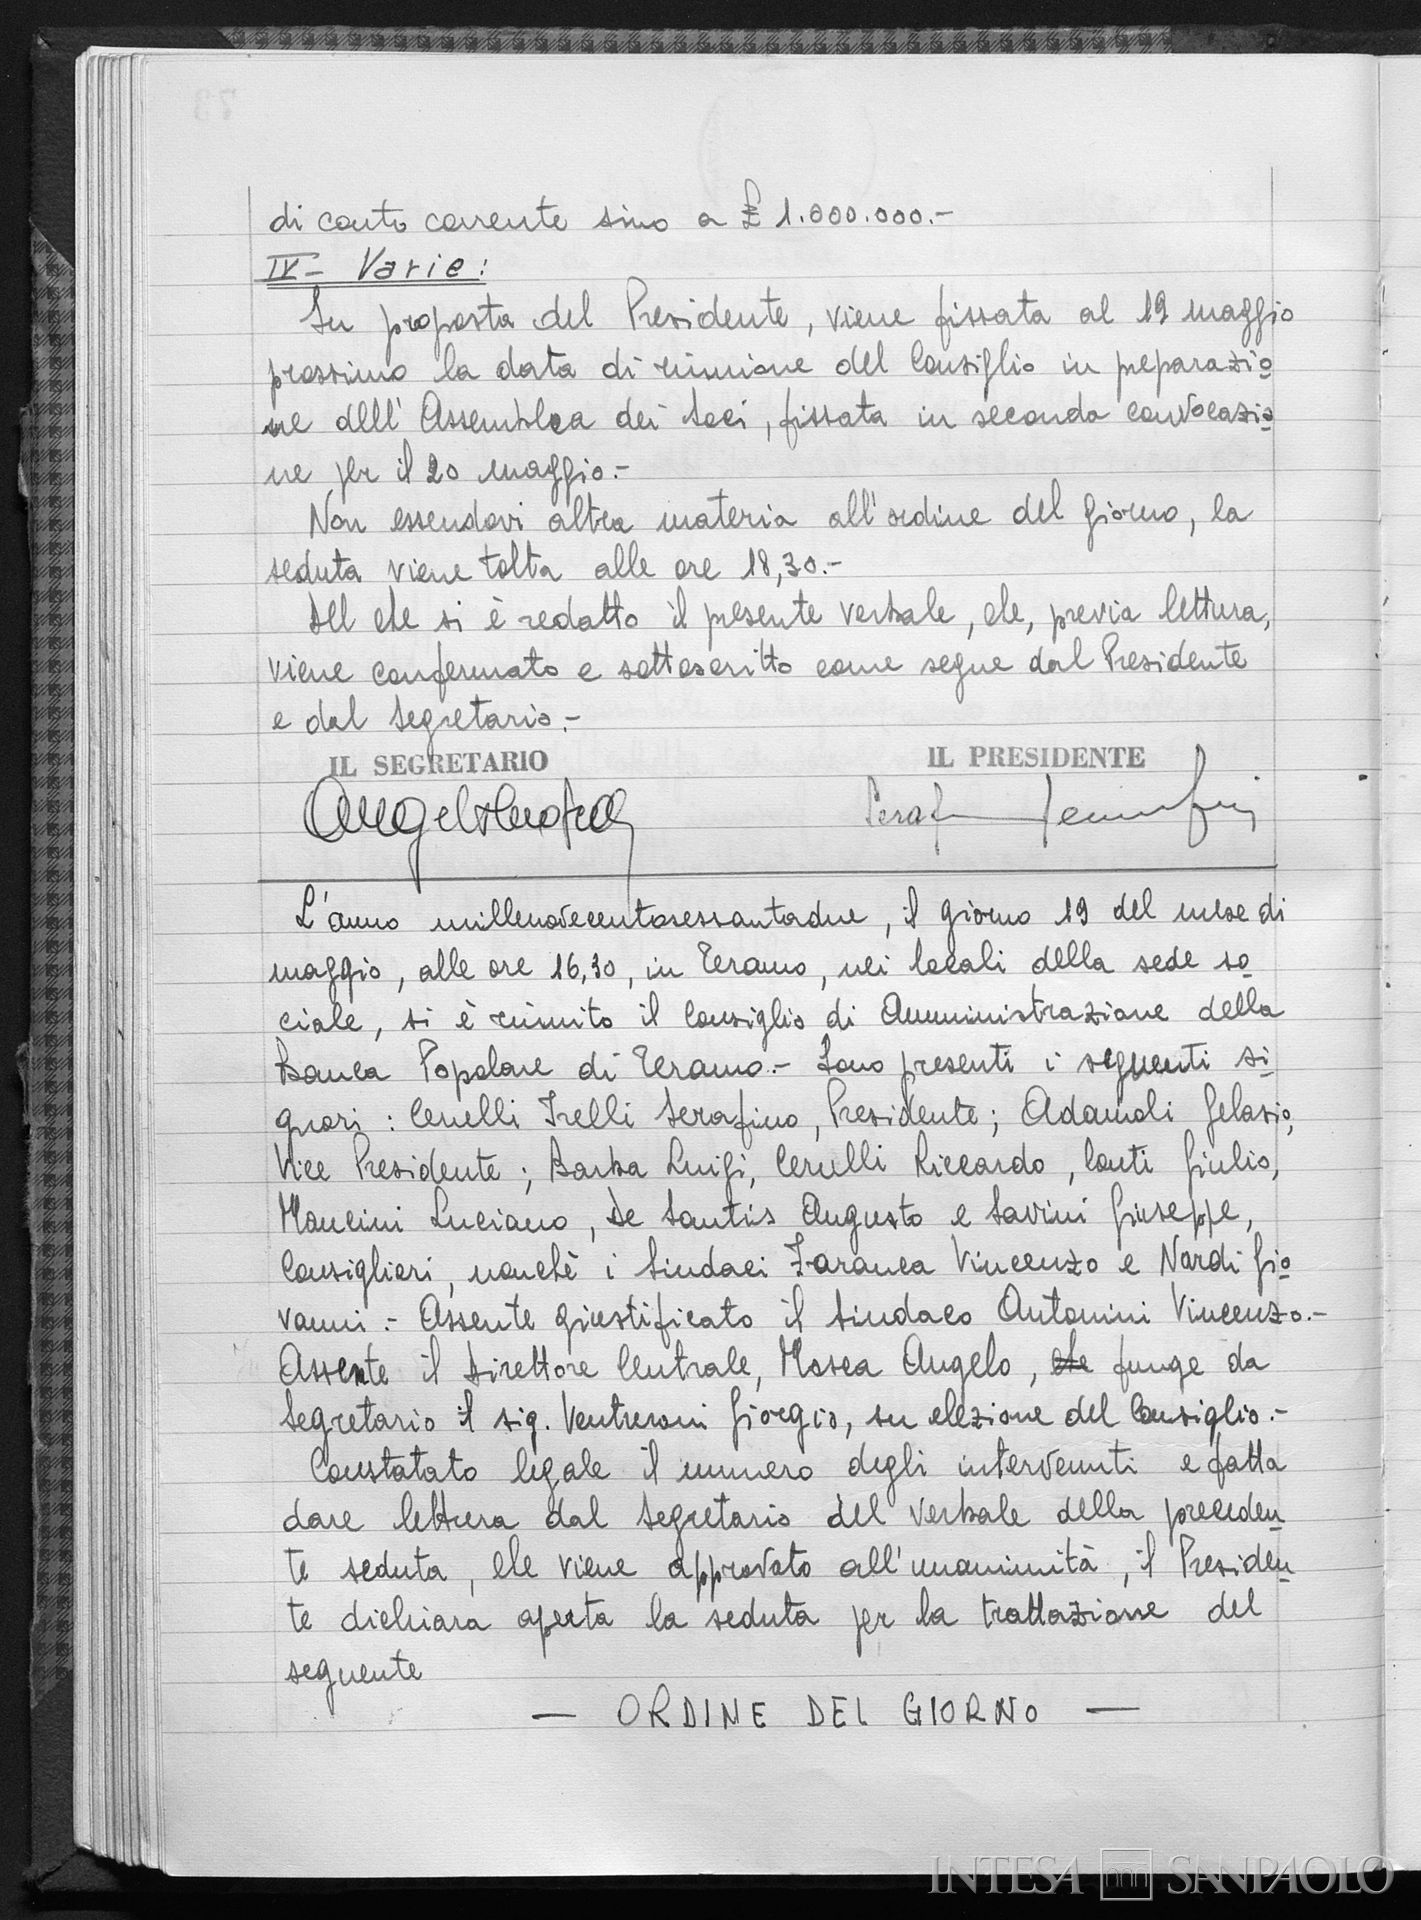 di conto corrente sino a £ 1.000.000.-
IV - Varie:
Su proposta del Presidente, viene fissata al 19 maggio
prossimo la data di riunione del Consiglio in preparazio
ne dell'Assemblea dei Soci, fissata in seconda convocazio
ne per il 20 maggio.-
Non essendovi altra materia all'ordine del giorno, la
seduta viene tolta alle ore 18,30.-
Del che si è redatto il presente verbale, che, previa lettura,
viene confermato e sottoscritto come segue dal Presidente
e dal Segretario.-
IL SEGRETARIO IL PRESIDENTE
L'anno millenovecentosessantadue, il giorno 19 del mese di
maggio, alle ore 16,30, in Teramo, nei locali della sede so
ciale, si è riunito il Consiglio di Amministrazione della
Banca Popolare di Teramo.- Sono presenti i seguenti si
gnori: Cerulli Irelli Serafino, Presidente; Adamoli Gelasio,
Vice Presidente; Barba Luigi, Cerulli Riccardo, Conti Giulio,
Mancini Luciano, De Santis Augusto e Savini Giuseppe,
Consiglieri, nonchè i Sindaci Zaranca Vincenzo e Nardi Gio
vanni.- Assente giustificato il Sindaco Antonini Vincenzo.-
Assente il Direttore Centrale, Mosca Angelo, che funge da
Segretario il sig. Ventureoni Giorgio, su elezione del Consiglio.-
Constatato legale il numero degli intervenuti e fatta
dare lettura dal Segretario del verbale della preceden
te seduta, che viene approvato all'unanimità, il Presiden
te dichiara aperta la seduta per la trattazione del
seguente
— ORDINE DEL GIORNO —
INTESA SANPAOLO